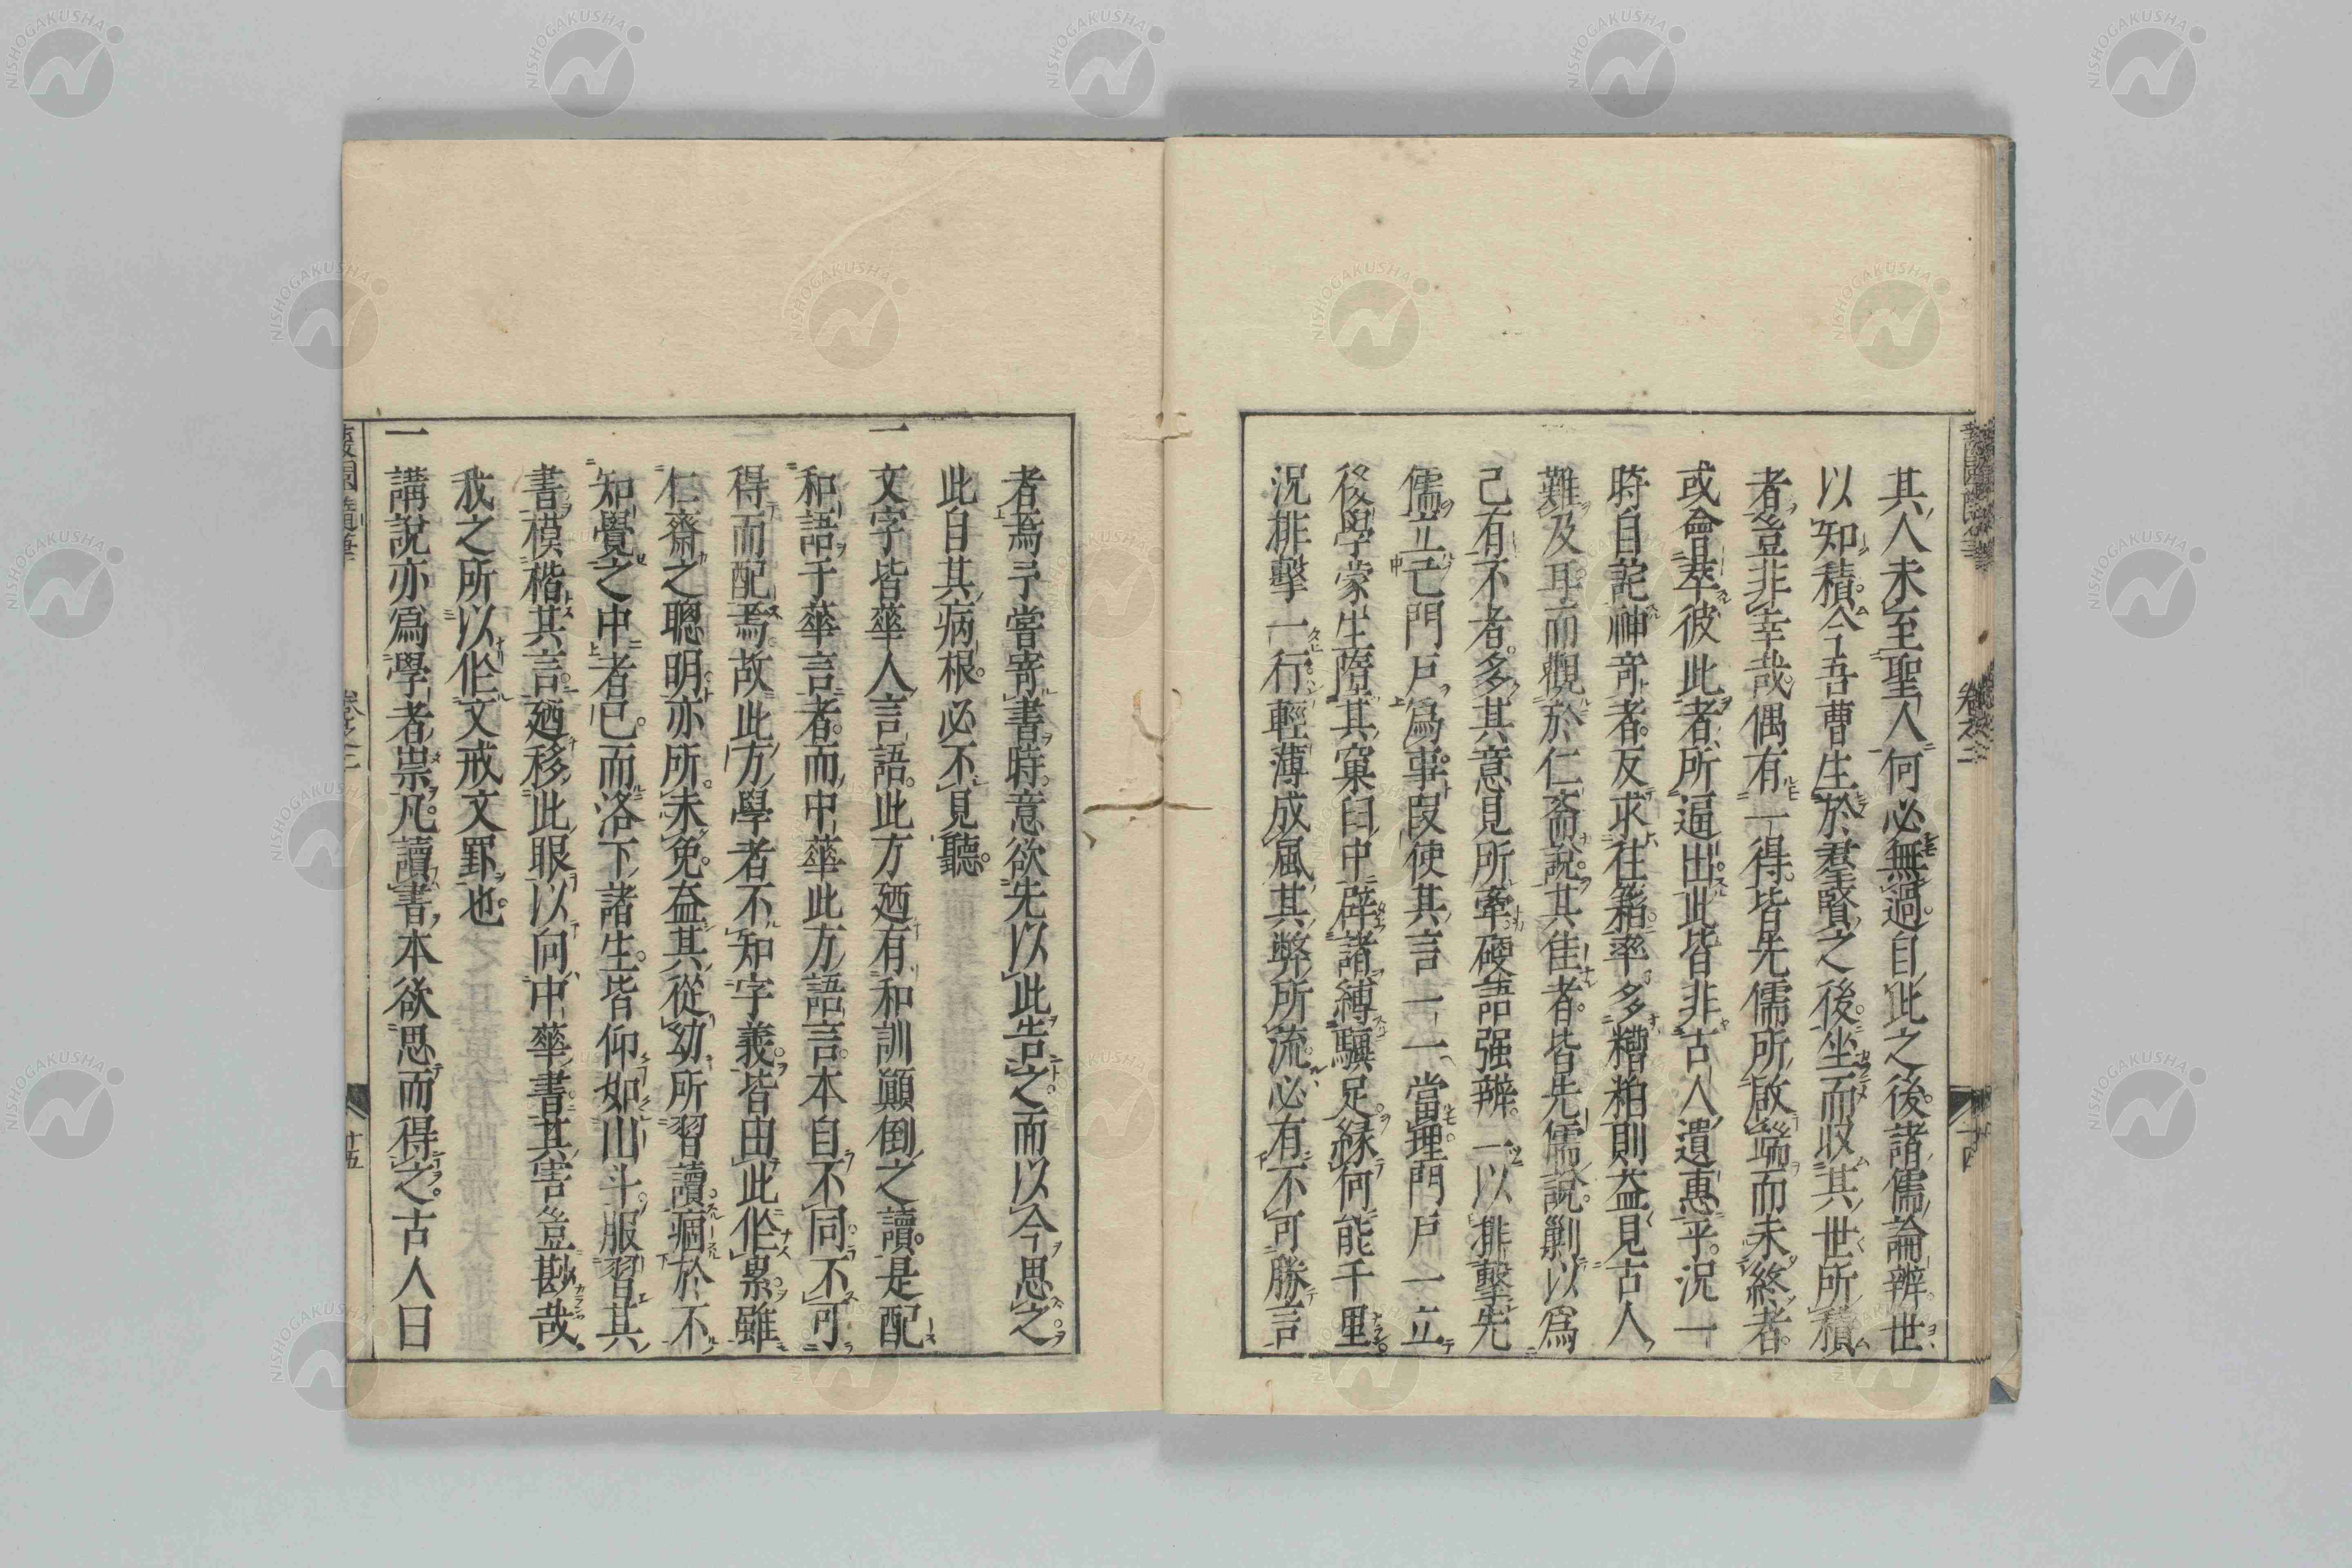 其人未至聖人何必無過自此之後諸儒論辨世
以知積今吾曹生於羣賢之後坐而收其世所積
者豈非幸哉偶有一得皆先儒所啟端而未終者
或會萃彼此者所逼出此皆非古人遺惠乎況一
時自詫神奇者反求往籍率多糟粕則益見古人
難及耳而觀於仁齋說其佳者皆先儒說剿以爲
己有不者多其意見所牽硬語强辨一以排擊先
儒立己門戶爲事叚使其言一一當理門戶一立
後學蒙生墮其窠臼中辟諸縛驥足緣何能千里
況排擊一行輕薄成風其弊所流必有不可勝言
者焉予嘗寄書時意欲先以此告之而以今思之
此自其病根必不見聽
一文字皆華人言語此方廼有和訓顚倒之讀是配
和語于華言者而中華此方語言本自不同不可
得而配焉故此方學者不知字義皆由此作累雖
仁齋之聰明亦所未免益其從幼所習讀痼於不
知覺之中者已而洛下諸生皆仰如山斗服習其
書模楷其言廼移此眼以向中華書其害豈尠哉
我之所以作文戒文罪也
一講說亦爲學者祟凡讀書本欲思而得之古人曰
蘐園隨筆
卷之二
十五
NISHOGAKUSHA